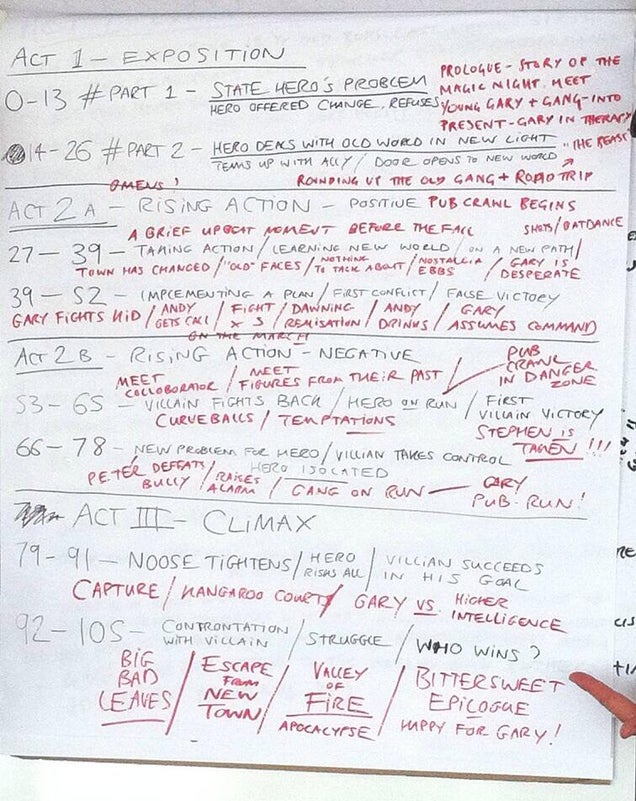 ACT 1 – EXPOSITION
0-13 # PART 1 - STATE HERO'S PROBLEM
HERO OFFERED CHANGE, REFUSES
PROLOGUE - STORY OF THE
MAGIC NIGHT. MEET
YOUNG GARY + GANG - INTO
PRESENT - GARY IN THERAPY
14-26 # PART 2 - HERO DEALS WITH OLD WORLD IN NEW LIGHT
TEAMS UP WITH ALLY / DOOR OPENS TO NEW WORLD
"THE BEAST"
OMENS'
ROUNDING UP THE OLD GANG + ROAD TRIP
ACT 2A – RISING ACTION – POSITIVE PUB CRAWL BEGINS
A BRIEF UPBEAT MOMENT BEFORE THE FALL
SHOTS/OATDANCE
27 - 39 - TAKING ACTION / LEARNING NEW WORLD / ON A NEW PATH /
TOWN HAS CHANGED / "OLD" FACES / NOTHING TO TALK ABOUT / NOSTALGIA EBBS / GARY IS DESPERATE
39 - 52 - IMPLEMENTING A PLAN / FIRST CONFLICT / FALSE VICTORY
GARY FIGHTS KID / ANDY GETS CALL / FIGHT X 5 / DAWNING REALISATION / ANDY DRINKS / GARY ASSUMES COMMAND
ON THE MARCH
ACT 2B – RISING ACTION – NEGATIVE
PUB
CRAWL
IN DANGER
ZONE
MEET COLLOBORATOR / MEET FIGURES FROM THEIR PAST
53 - 65 - VILLAIN FIGHTS BACK / HERO ON RUN / FIRST VILLAIN VICTORY
CURVEBALLS / TEMPTATIONS
STEPHEN IS
TAKEN !!!
66 - 78 - NEW PROBLEM FOR HERO / VILLAIN TAKES CONTROL
HERO ISOLATED
PETER DEFEATS BULLY / RAISES ALARM / GANG ON RUN — GARY PUB-RUN!
ACT III – CLIMAX
79 - 91 - NOOSE TIGHTENS / HERO RISKS ALL / VILLIAN SUCCEEDS IN HIS GOAL
CAPTURE / KANGAROO COURT / GARY VS. HIGHER INTELLIGENCE
92 - 105 - CONFRONTATION WITH VILLAIN / STRUGGLE / WHO WINS?
BIG BAD LEAVES / ESCAPE FROM NEW TOWN / VALLEY OF FIRE APOCALYPSE / BITTERSWEET EPILOGUE
HAPPY FOR GARY!